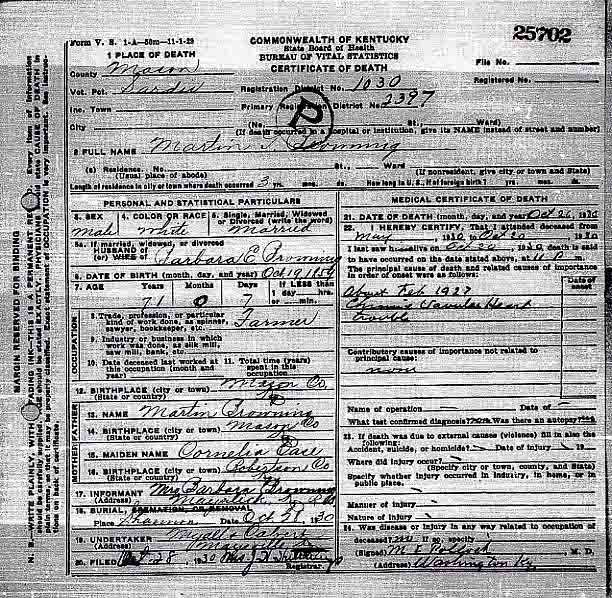 25702
Form V. S. 1-A—50m—11-1-29
COMMONWEALTH OF KENTUCKY
State Board of Health
BUREAU OF VITAL STATISTICS
CERTIFICATE OF DEATH
1 PLACE OF DEATH
County Mason
File No.
Registered No.
Vot. Pct. Sardis
Registration District No. 1030
Inc. Town
Primary Registration District No. 2397
P
City
(No. St., Ward)
(If death occurred in a hospital or institution, give its NAME instead of street and number)
2 FULL NAME Martin Browning
(a) Residence. No. St., Ward
(Usual place of abode)
(If nonresident, give city or town and State)
Length of residence in city or town where death occurred 3 yrs. mos. ds.
How long in U. S., if of foreign birth? yrs. mos. ds.
PERSONAL AND STATISTICAL PARTICULARS
3. SEX
Male
4. COLOR OR RACE
White
5. Single, Married, Widowed or Divorced (write the word)
Married
5a. If married, widowed, or divorced
HUSBAND of
(or) WIFE of Barbara E Browning
6. DATE OF BIRTH (month, day, and year) Oct 19 1859
7. AGE Years Months Days If LESS than
1 day, hrs.
or min.
71 0 7
OCCUPATION
8. Trade, profession, or particular
kind of work done, as spinner,
sawyer, bookkeeper, etc. Farmer
9. Industry or business in which
work was done, as silk mill,
saw mill, bank, etc.
10. Date deceased last worked at
this occupation (month and
year)
11. Total time (years)
spent in this
occupation
12. BIRTHPLACE (city or town) Mason Co
(State or country)
FATHER
13. NAME Martin Browning
14. BIRTHPLACE (city or town) Mason Co
(State or country)
MOTHER
15. MAIDEN NAME Cornelia
16. BIRTHPLACE (city or town) Robertson Co
(State or country)
17. INFORMANT Mrs Barbara Browning
(Address)
18. BURIAL, CREMATION, OR REMOVAL
Place Shannon Date Oct 28, 1930
19. UNDERTAKER
(Address)
20. FILED Oct 28, 1930
Registrar.
MEDICAL CERTIFICATE OF DEATH
21. DATE OF DEATH (month, day, and year) Oct 26 1930
22. I HEREBY CERTIFY, That I attended deceased from
May 1930 to Oct 20 1930
I last saw h alive on Oct 20 1930, death is said
to have occurred on the date stated above, at m.
The principal cause of death and related causes of importance
in order of onset were as follows:
Date of
onset
About Feb 1927
Chronic Valvular Heart
trouble
Contributory causes of importance not related to
principal cause:
none
Name of operation Date of
What test confirmed diagnosis? Was there an autopsy?
23. If death was due to external causes (violence) fill in also the
following:
Accident, suicide, or homicide? Date of injury 19
Where did injury occur?
(Specify city or town, county, and State)
Specify whether injury occurred in industry, in home, or in
public place.
Manner of injury
Nature of injury
24. Was disease or injury in any way related to occupation of
deceased? no If so, specify
(Signed) M. D.
(Address) Washington Ky
MARGIN RESERVED FOR BINDING